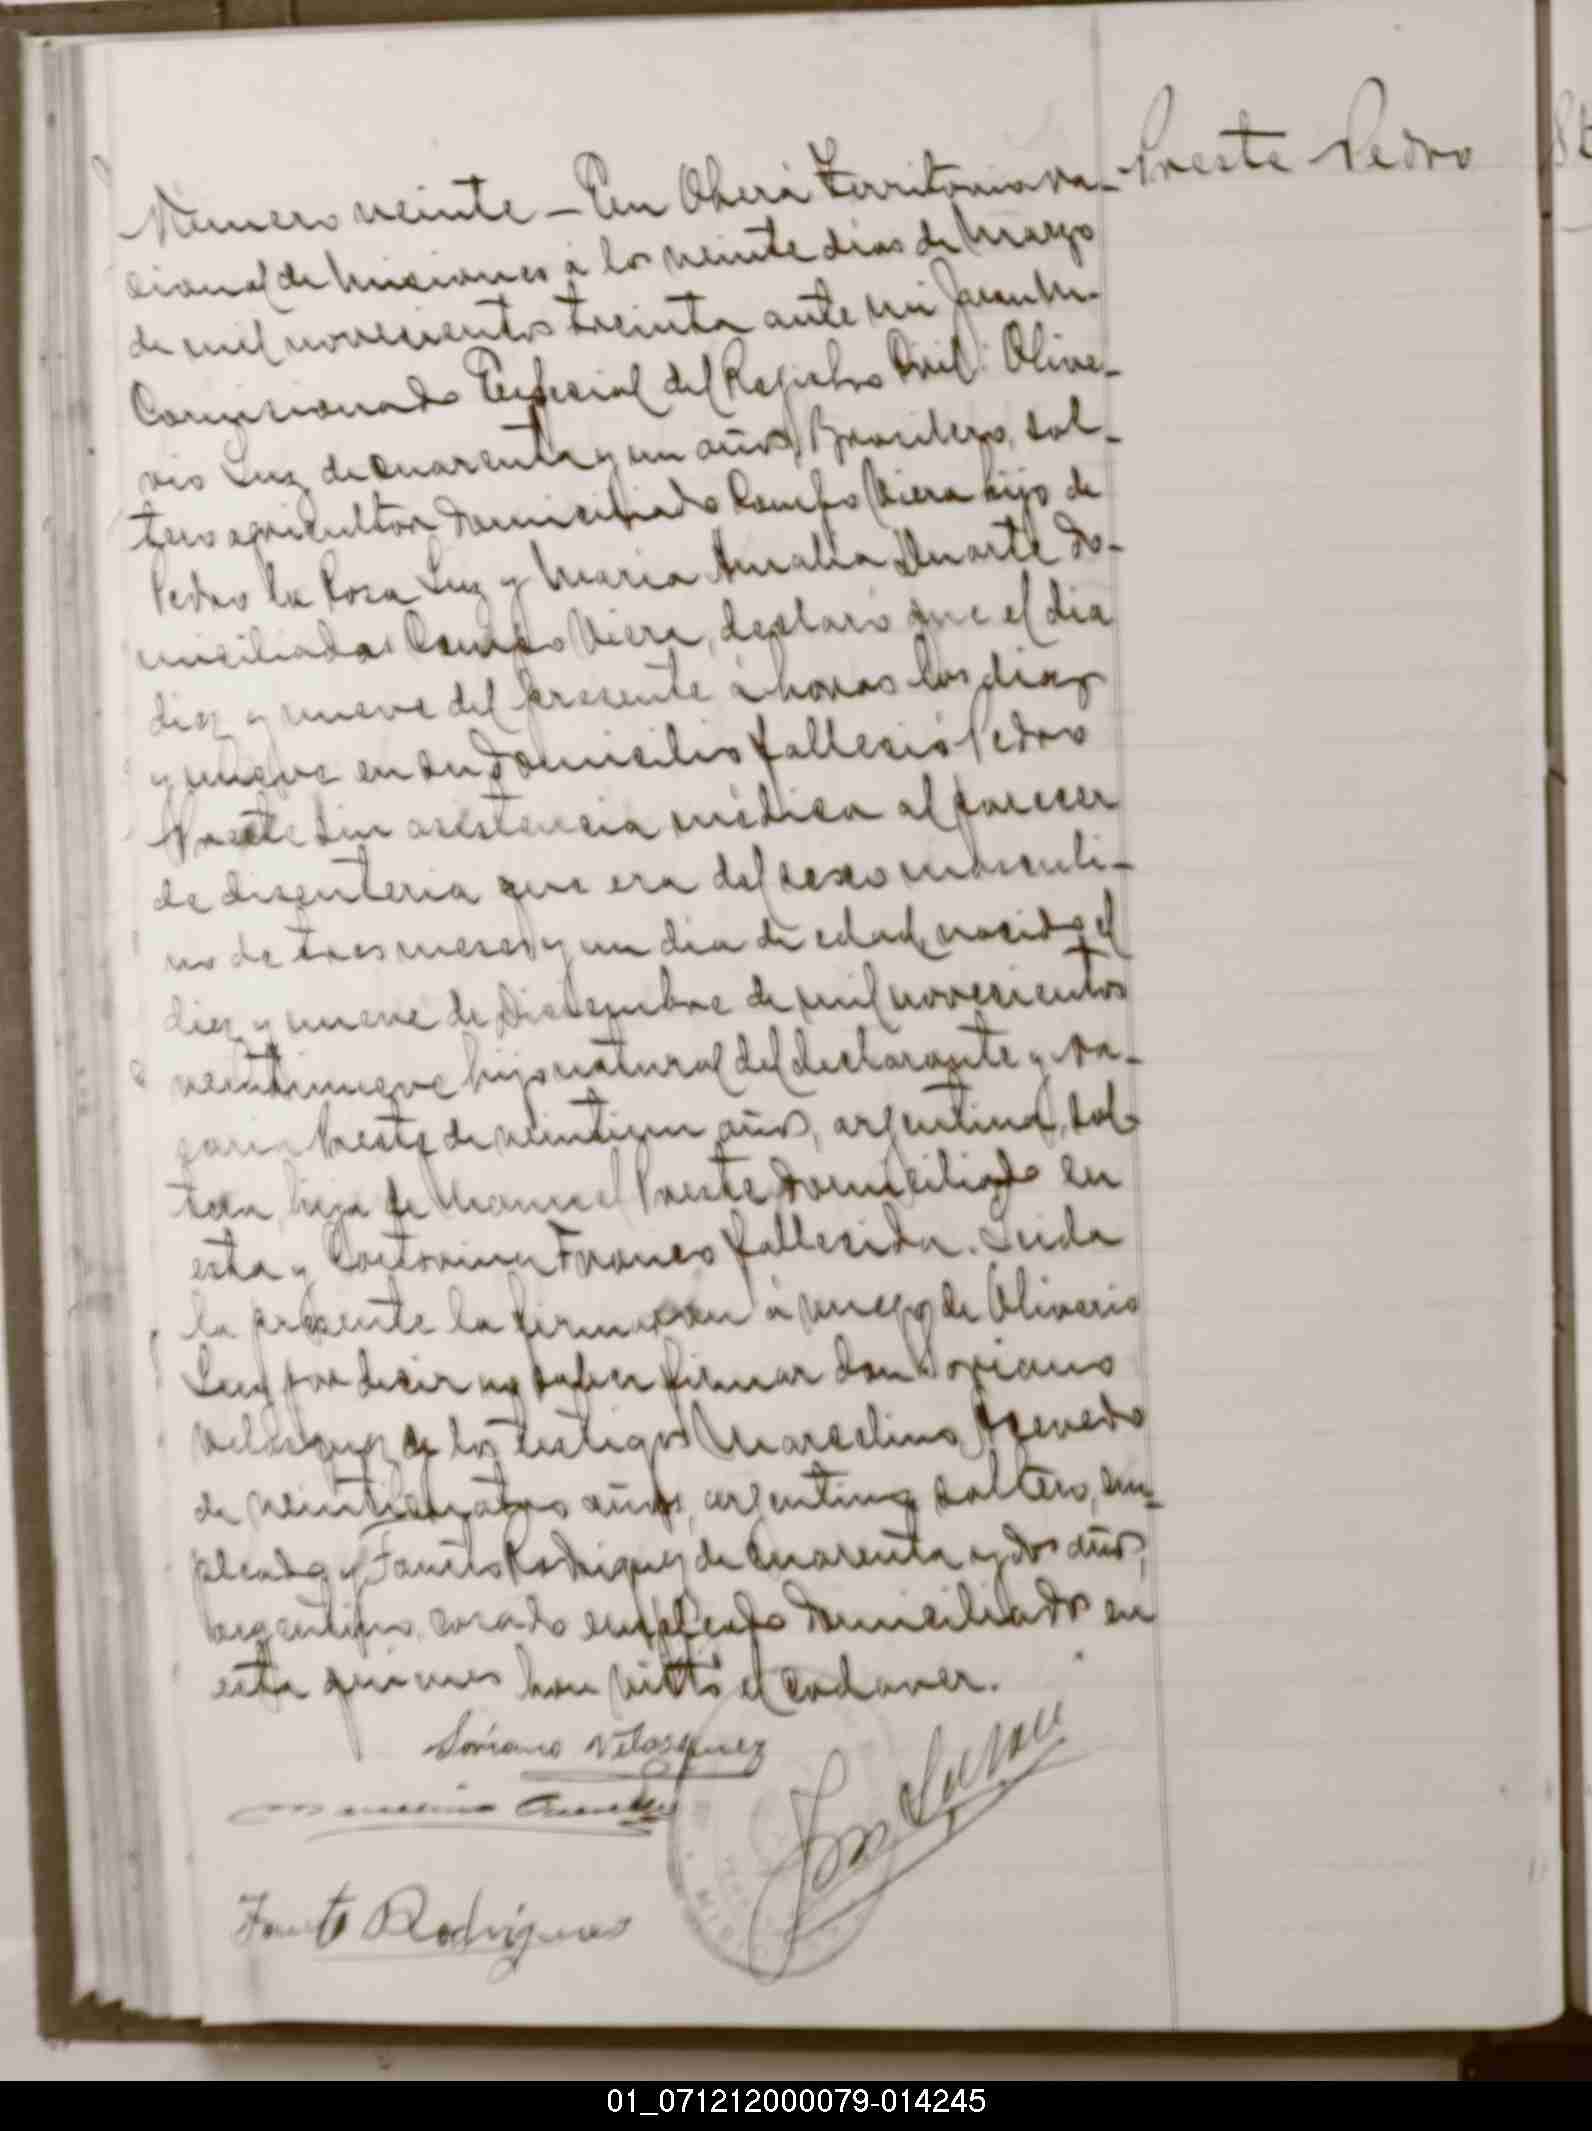 Preste Pedro
Número veinte – En Oberá Territorio na-
cional de Misiones á los veinte dias de Marzo
de mil novecientos treinta ante mi
Comisionado Especial del Registro Civil: Olive-
rio Luz de cuarenta y un años, Brasilero, sol-
tero agricultor domiciliado Campo Viera hijo de
Pedro la Rosa Luz y Maria Amalia Duarte do-
miciliados Campo Viera, declaró que el dia
diez y nueve del presente á horas las diez
y nueve en su domicilio falleció Pedro
Preste sin asistencia médica al parecer
de disenteria que era del sexo masculi-
no de tres meses y un dia de edad, nacido el
diez y nueve de Diciembre de mil novecientos
veintinueve hijo natural del declarante y
Preste de veintiun años, argentina, sol-
tera, hija de Manuel Preste domiciliado en
esta y Franco fallecida. Leida
la presente la firmaron á ruego de Oliverio
Luz por decir no saber firmar don Soriano
Velasquez de los testigos Marcelino Acevedo
de veinticuatro años, argentino, soltero, em-
pleado, y Fausto Rodriguez de cuarenta y dos años,
argentino, casado empleado domiciliados en
esta quienes han visto el cadaver.
Soriano Velasquez
Marcelino
Fausto Rodrigues
01_071212000079-014245